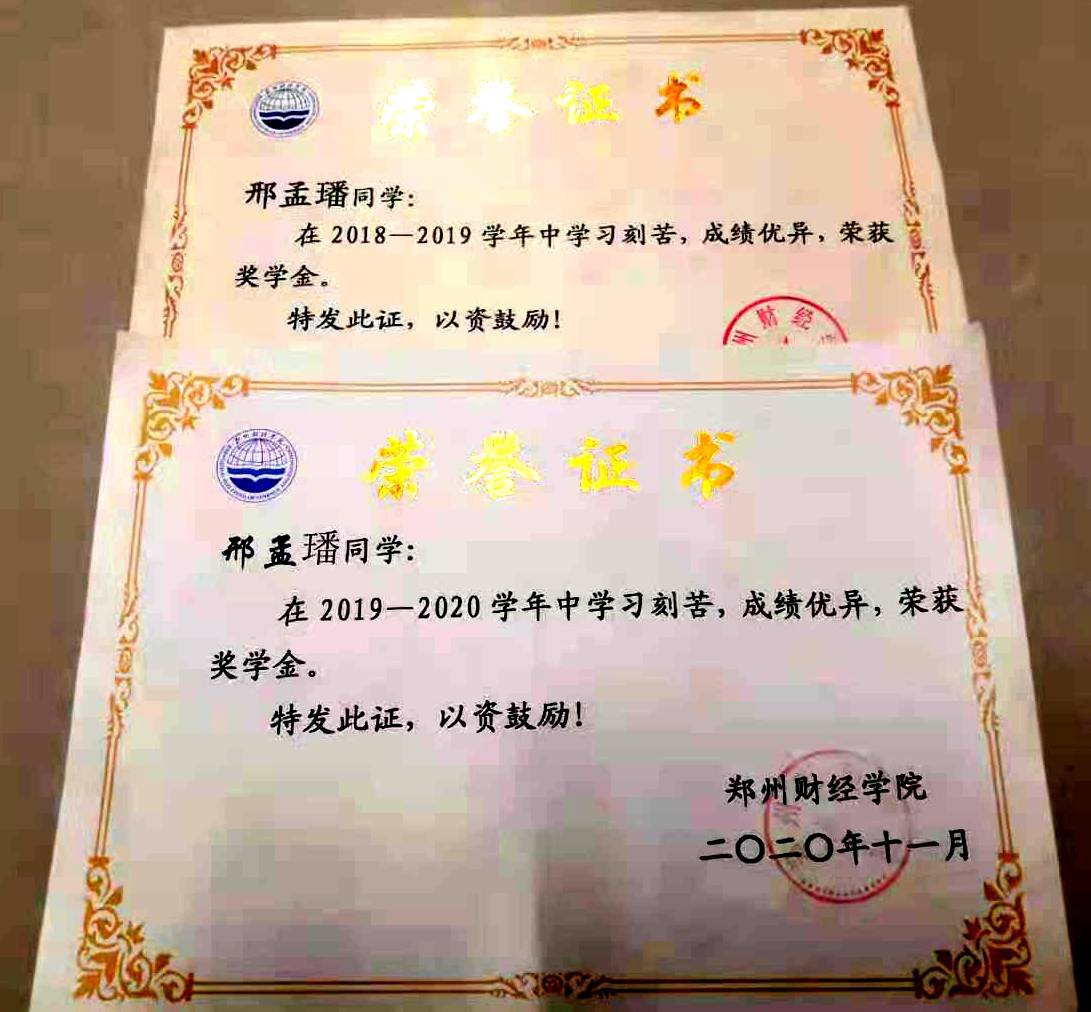 荣誉证书
邢孟璠同学：
在2018—2019学年中学习刻苦，成绩优异，荣获
奖学金。
特发此证，以资鼓励！
州财经
荣誉证书
邢孟璠同学：
在2019—2020学年中学习刻苦，成绩优异，荣获
奖学金。
特发此证，以资鼓励！
郑州财经学院
二〇二〇年十一月